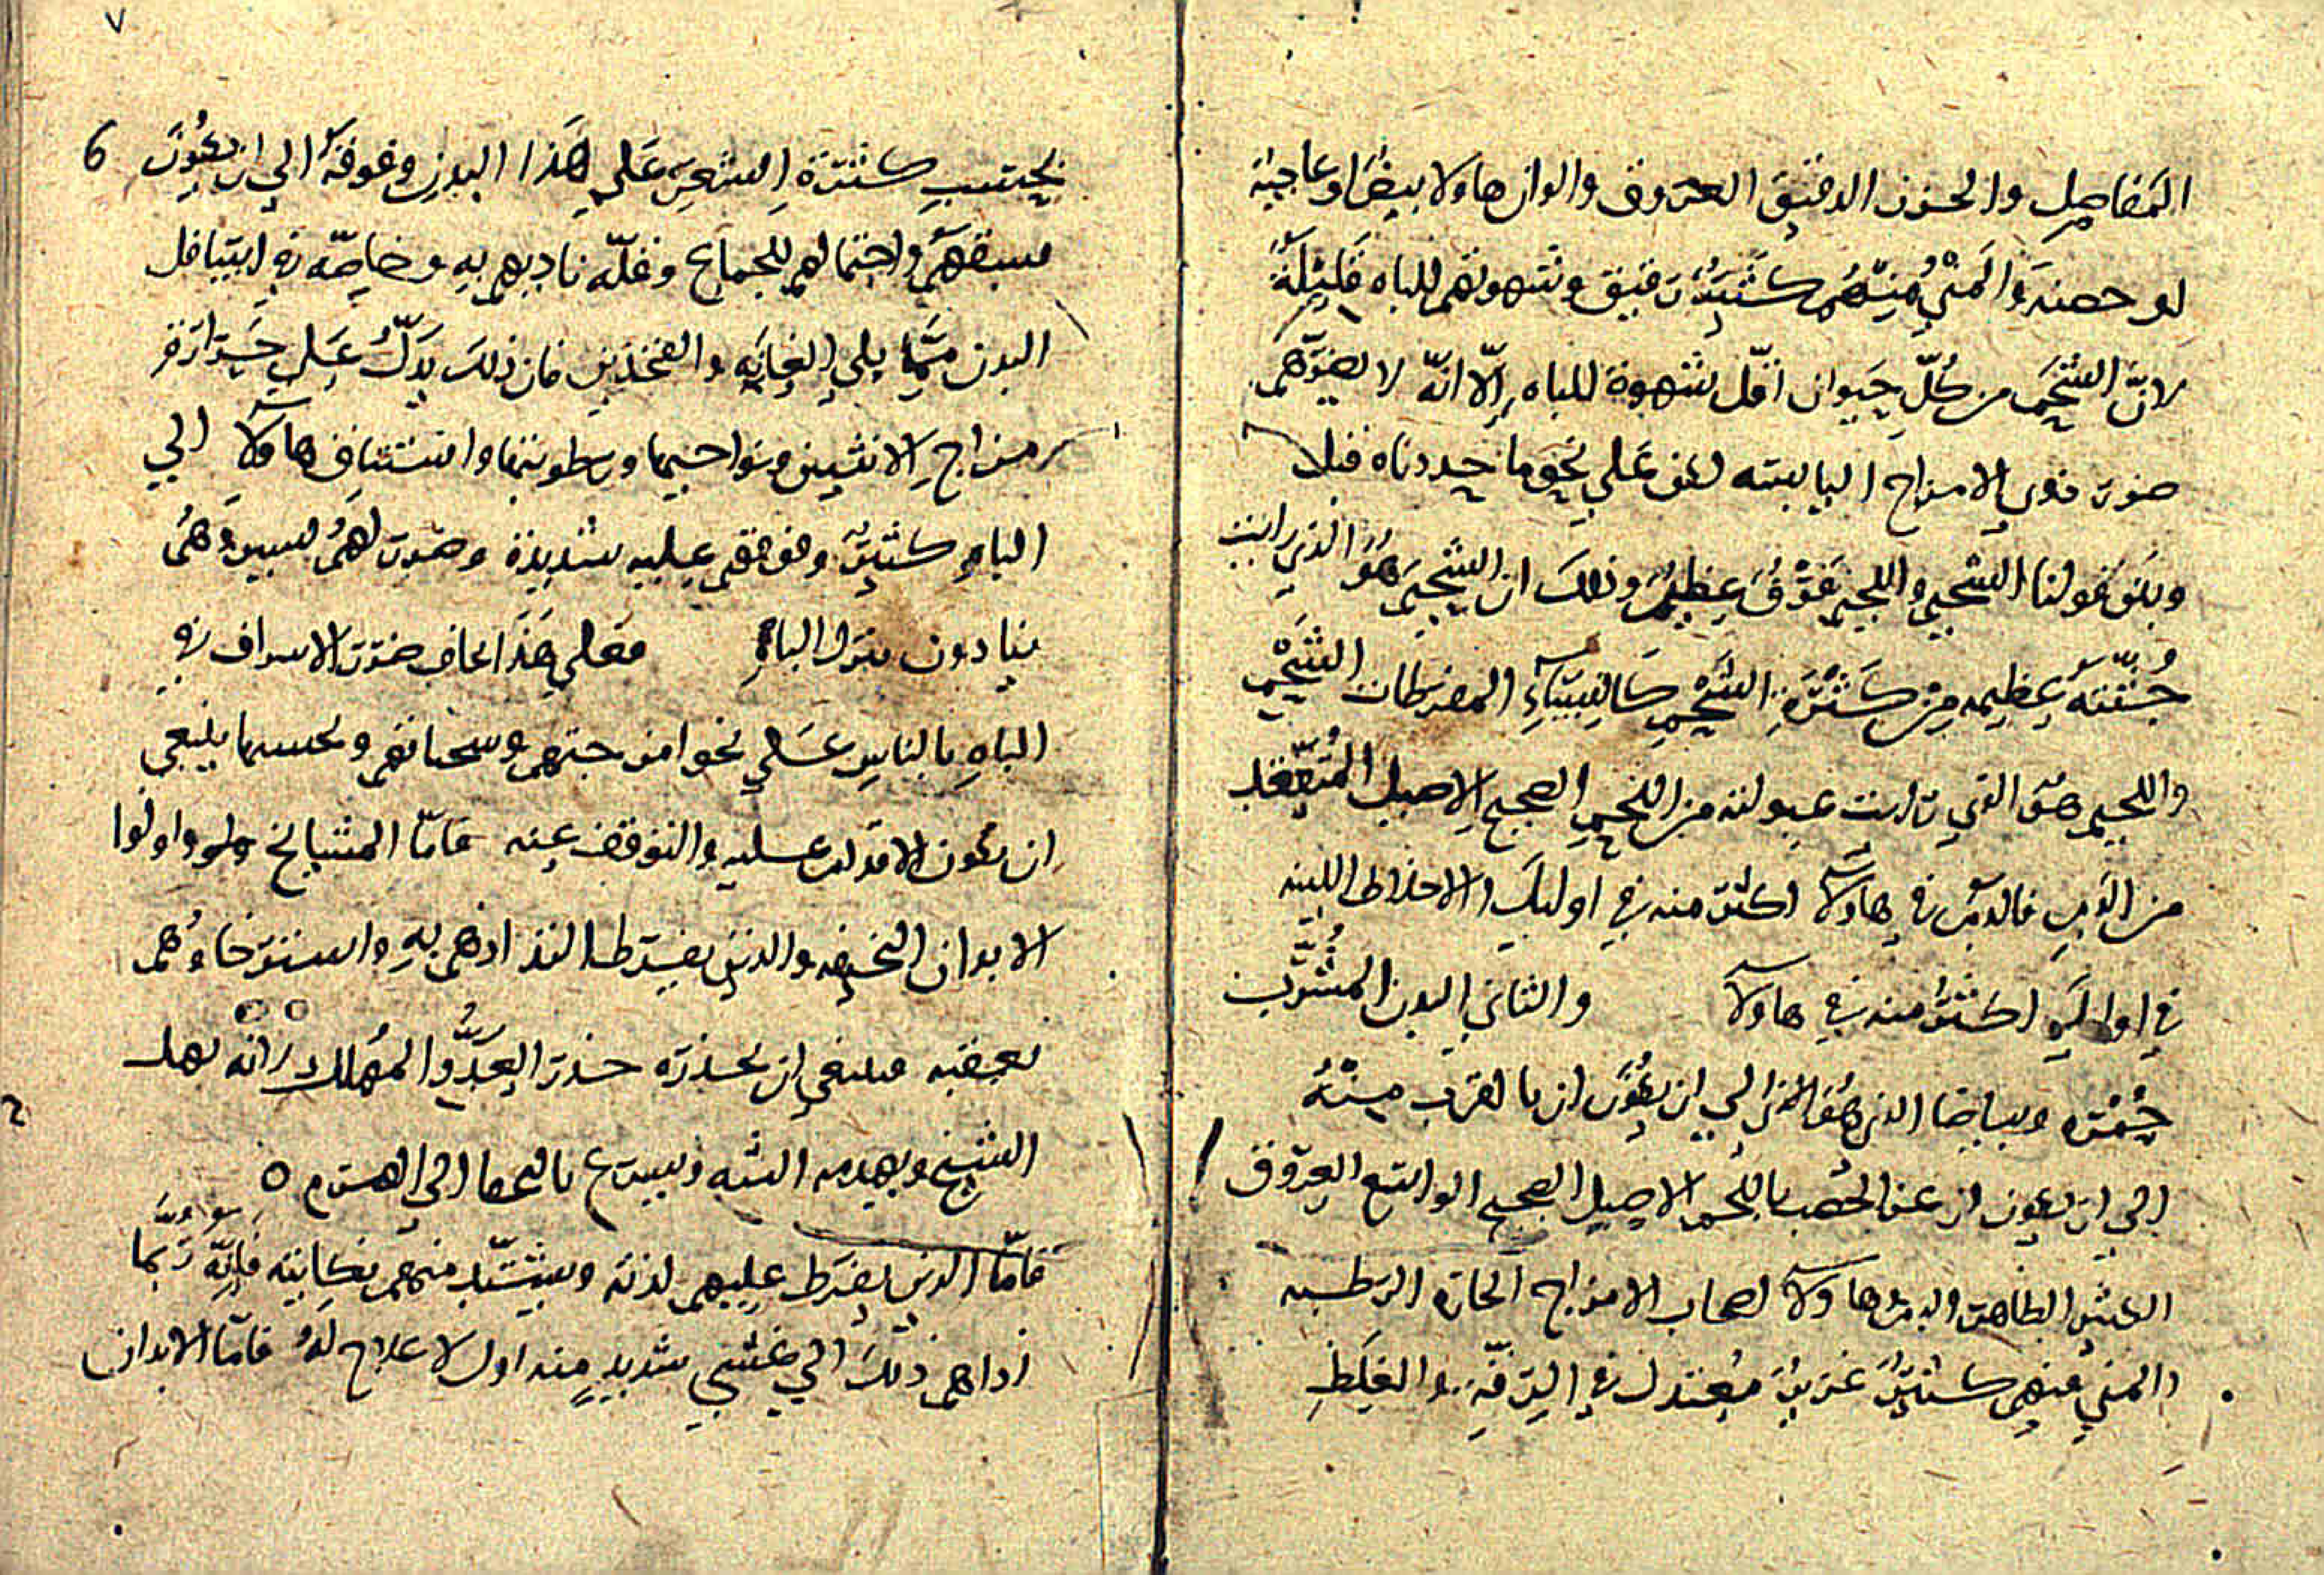 المفاصل والحزن الدقيق العروق والوان هاولا بيضا وعاجية
لو حصنه والمني منهم كثير رقيق وشهوتهم للباه قليلة
لان الشحم من كل حيوان اقل شهوة للباه الا انه لا يضرهم
ضرر ذوي الامزاج اليابسه لكن علي نحو ما حددناه قبلا
وبين قولنا الشحمي واللحيم فرق عظيم وذلك ان الشحيم هو الذي رايت
جثته عظيمه من كثرة الشحم كالنساء المفرطات الشحم
واللحيم هو الذي رايت عبولته من اللحم الصحيح الاصيل المتعقد
من الدم فالدم في هاولا اكثر منه في اوليك الاخلاط اللينه
في اوليك اكثر منه في هاولا والثاني البدن المشرب
حمره وبياضا الذي هو الادنى الي ان يكون ازبا لقرب منه
الي ان يكون ازعن الخصب باللحم الاصيل الصحيح الواسع العروق
الكثير الظاهر الدم هاولا اصحاب الامزاج الحاره الرطبه
والمني منهم كثير غزير معتدل في الرقه والغلظ
6 بحسب كثرة الشعر علي هذا البدن وفوقه الي ان يكون
سبقهم واحتمالهم للجماع وقلة تاديهم به وخاصه في اسافل
البدن مما يلي العانه والفخذين فان ذلك يدل علي حرارة
مزاج الانثيين ونواحيهما ورطوبتها واستئناف هاولا الي
الباه كثير وقوتهم عليه شديدة وضرره لهم يسير وهم
يتادون بترك الباه فعلي هذا الحال ضرر الاسراف في
الباه بالناس علي نحو امزجتهم وسحناتهم وبحسبها ينبغي
ان يكون الاقدام عليه والتوقف عنه فاما المشايخ واولوا
الابدان النحيفه والذين يفرط التذاذهم به واسترخاوهم
بعقبه فينبغي ان يحذره حذر العدو المهلك لانه يهد
الشيخ ويهدمه البته ويسرع بالكهل الي الهرم ٥
فاما الذين يفرط عليهم لذته ويشتد منهم نكايته فانه ربما
اداهم ذلك الي غشي شديد منه اول لا علاج له فاما الابدان
٧